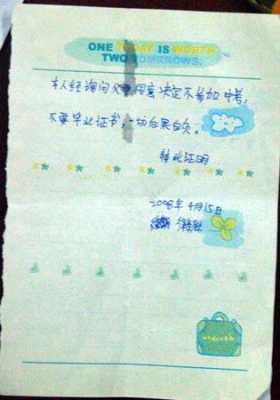 ONE TODAY IS WORTH
TWO TOMORROWS.
本人经询问父母同意决定不参加中考,
不要毕业证书,一切后果自负。
特此证明
2008年4月15日